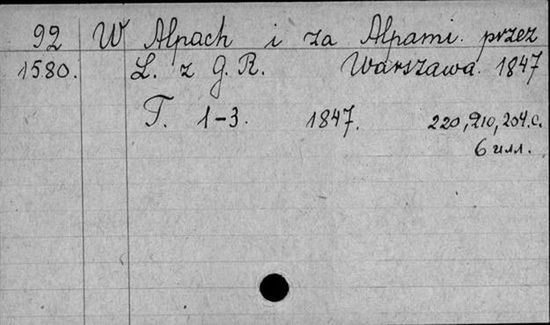 92 W Alpach i za Alpami. przez
1580. Ł. z G. R. Warszawa. 1847
T. 1-3. 1847. 220, 210, 204.c.
6 илл.